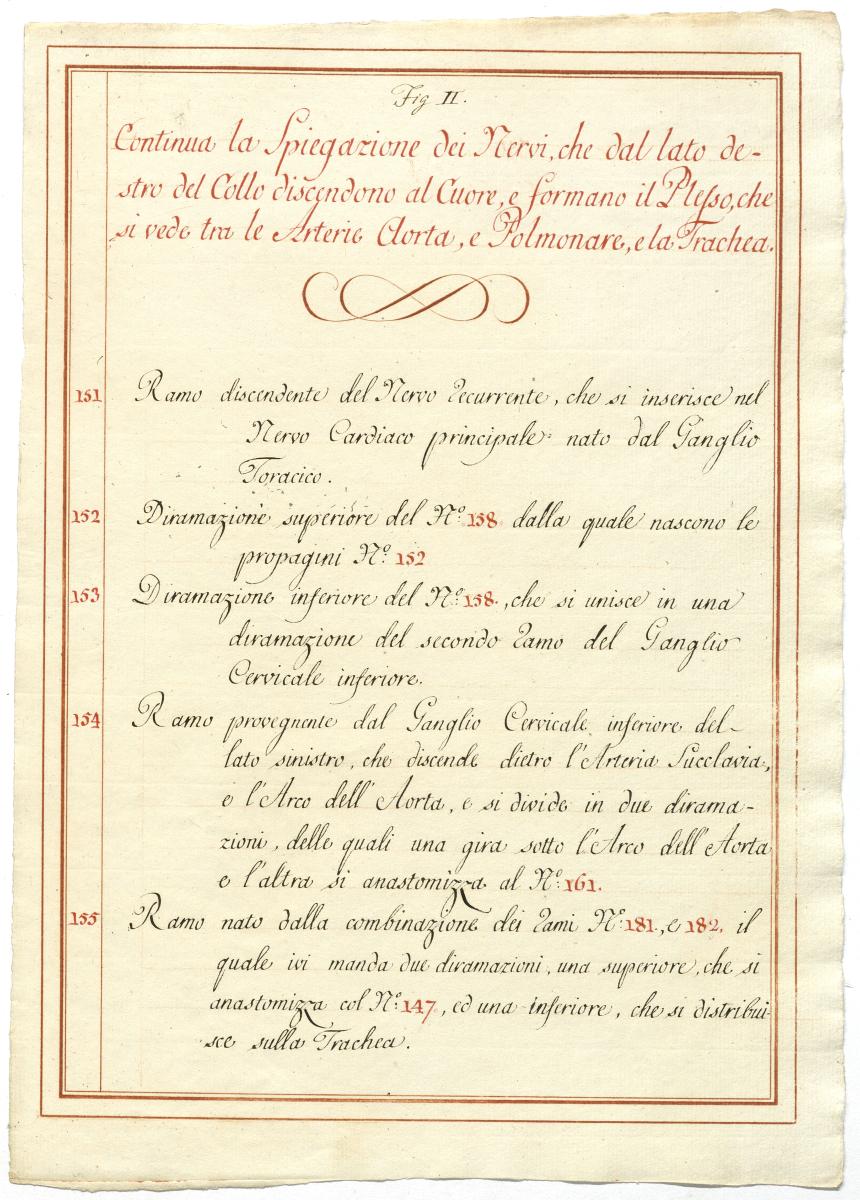 Fig II.
Continua la Spiegazione dei Nervi, che dal lato de-
stro del Collo discendono al Cuore, e formano il Plesso, che
si vede tra le Arterie Aorta, e Polmonare, e la Trachea.
151 Ramo discendente del Nervo recurrente, che si inserisce nel
Nervo Cardiaco principale nato dal Ganglio
Toracico.
152 Diramazione superiore del Nº 158 dalla quale nascono le
propagini Nº 152
153 Diramazione inferiore del Nº 158., che si unisce in una
diramazione del secondo ramo del Ganglio
Cervicale inferiore.
154 Ramo provegnente dal Ganglio Cervicale inferiore del
lato sinistro, che discende dietro l'Arteria Succlavia,
e l'Arco dell'Aorta, e si divide in due dirama-
zioni, delle quali una gira sotto l'Arco dell'Aorta
e l'altra si anastomizza al Nº 161.
155 Ramo nato dalla combinazione dei rami Nº 181., e 182. il
quale ivi manda due diramazioni, una superiore, che si
anastomizza col Nº 147., ed una inferiore, che si distribui-
sce sulla Trachea.